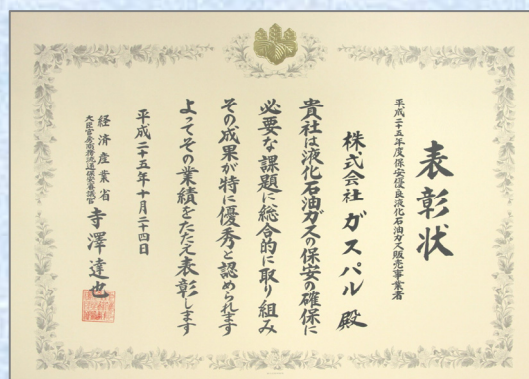 表彰状
平成二十五年度保安優良液化石油ガス販売事業者
株式会社 ガスパル 殿
貴社は液化石油ガスの保安の確保に
必要な課題に総合的に取り組み
その成果が特に優秀と認められます
よってその業績をたたえ表彰します
平成二十五年十月二十四日
経済産業省
大臣官房商務流通保安審議官 寺澤達也